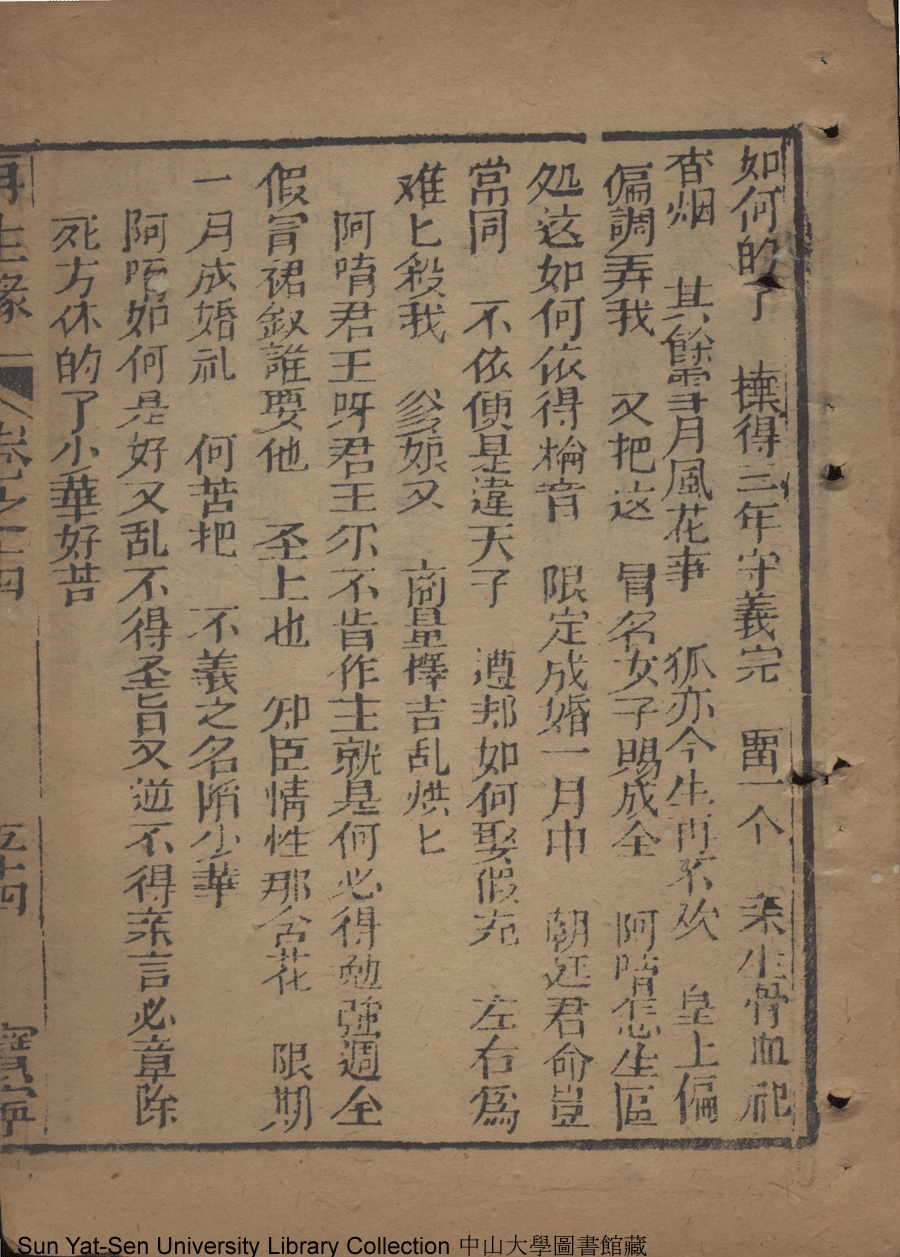 如何的了　撫得三年守義完　畱一个　亲生骨血祀
杳烟　其餘雪月風花事　狐亦今生再不欢　皇上偏
偏調弄我　又把这　冒名女子賜成全　阿唷怎生區
处这如何依得綸音　限定成婚一月中　朝廷君命豈
當同　不依便是違天子　遵却如何娶假充　左右爲
难匕殺我　爹娘又　商量擇吉乱烘匕
阿唷君王呀君王尔不肯作主就是何必得勉強週全
假冒裙釵誰要他　圣上也　知臣情性那舍花　限期
一月成婚礼　何苦把　不義之名陷少華
阿唷如何是好又乱不得圣旨又逆不得亲言必章除
死方休的了小華好苦
再生緣　卷之十四　五十四　寶寧
Sun Yat-Sen University Library Collection 中山大學圖書館藏